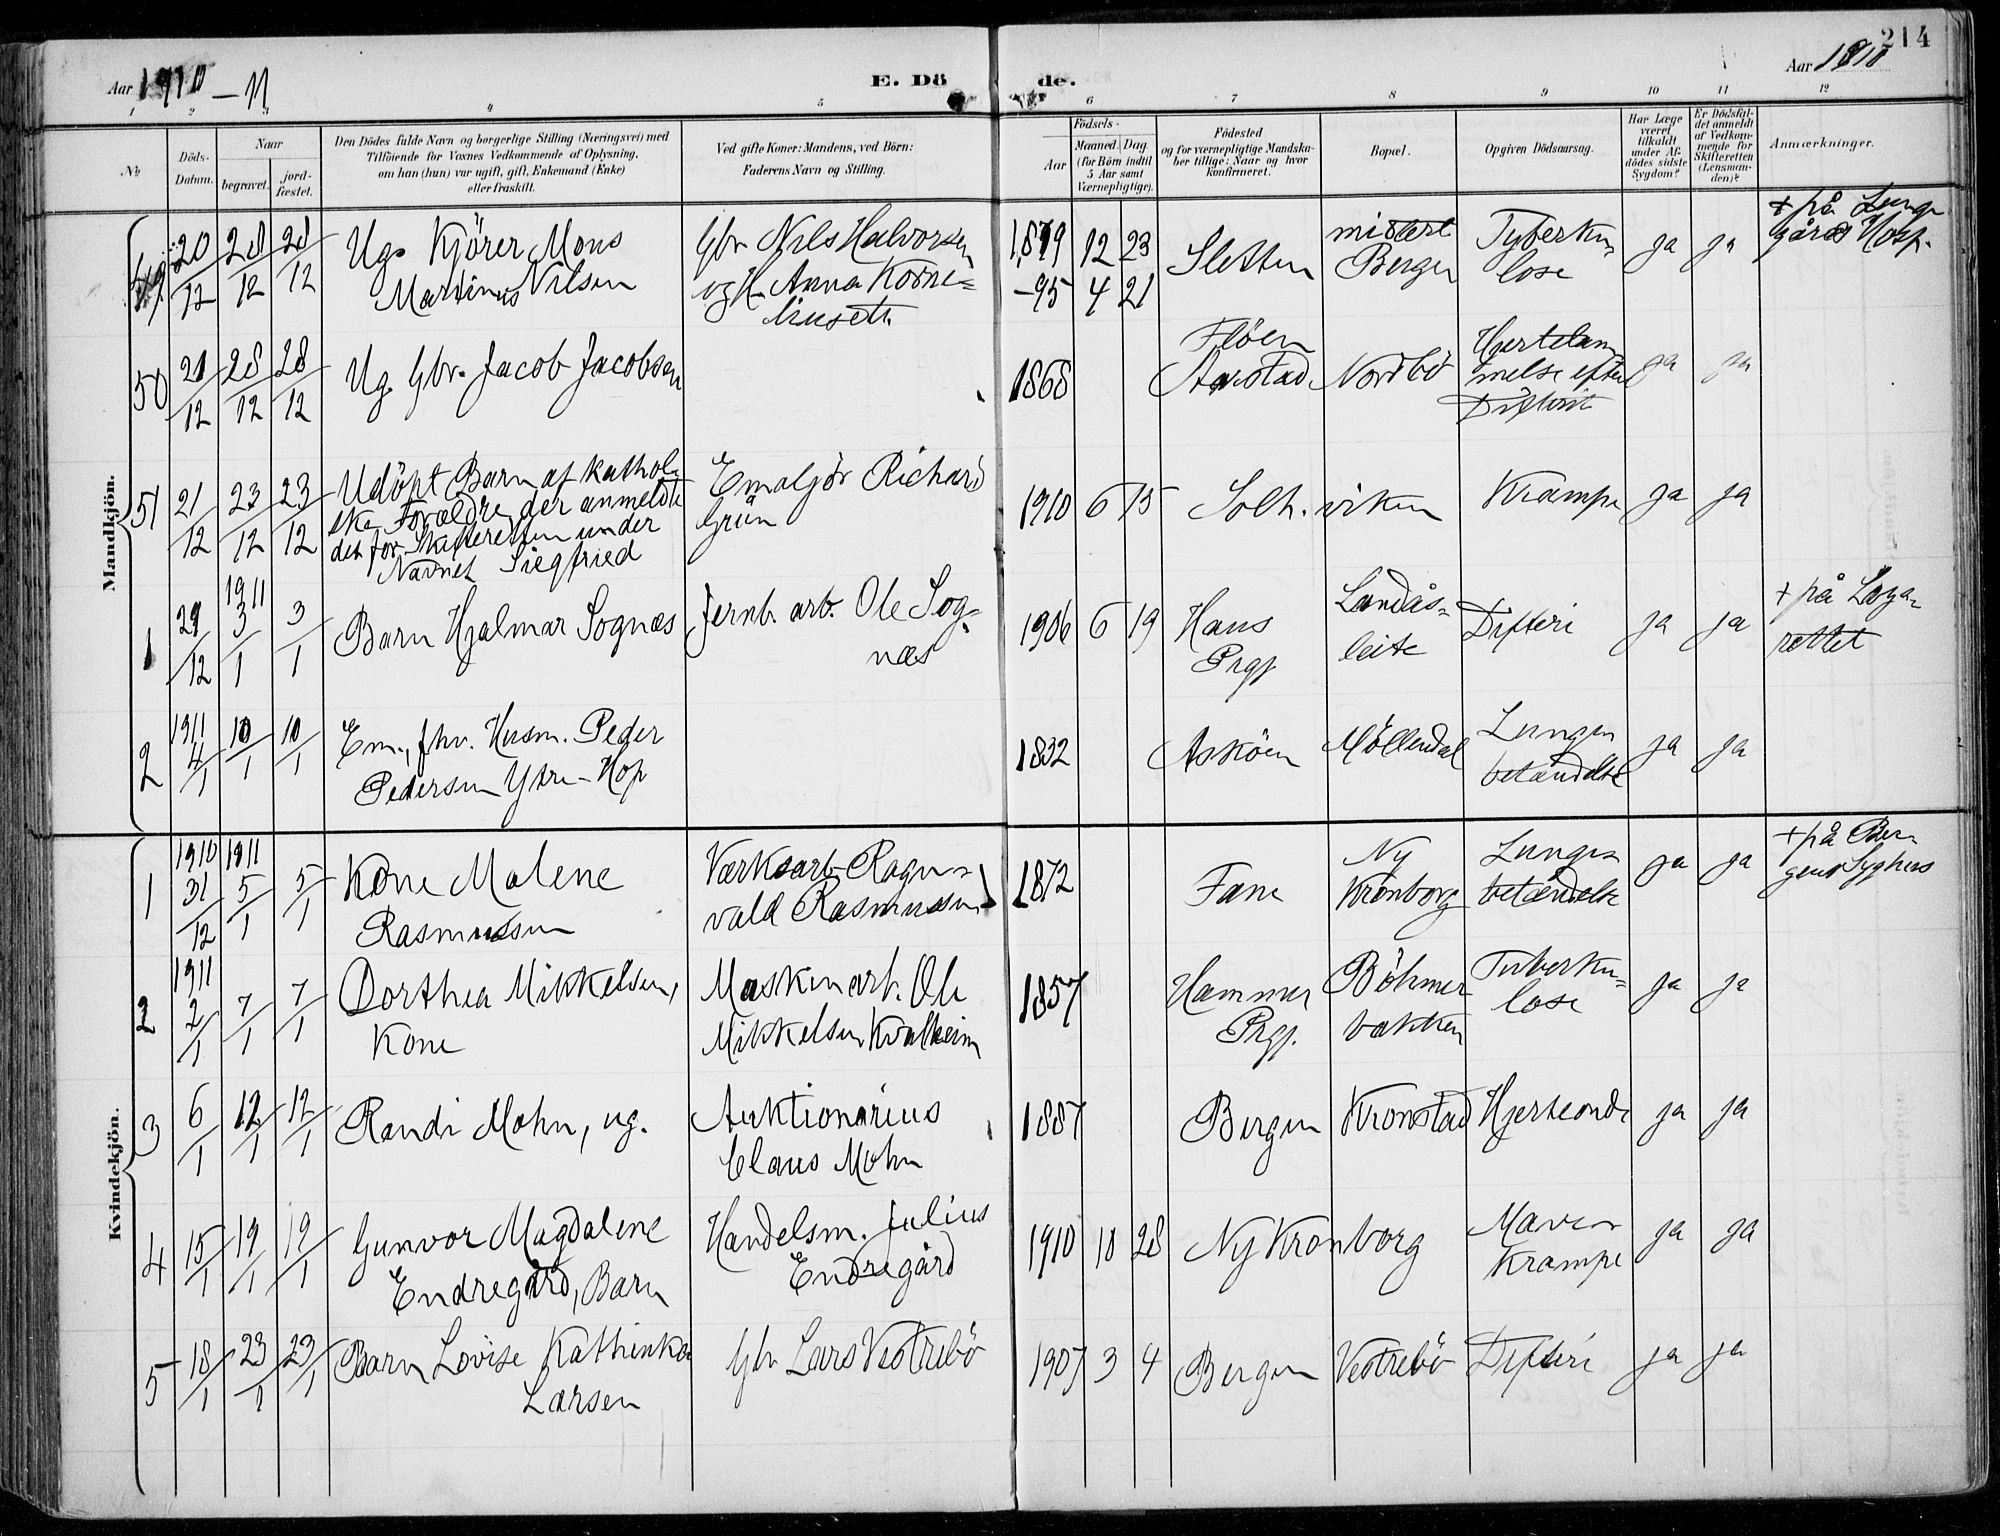 214
Aar 1910-11
E. Dö
de.
Aar 1910
1 2 3 4 5 6 7 8 9 10 11 12
No
Döds-
Datum.
Naar
begravet.
jord-
fæstet.
Den Dödes fulde Navn og borgerlige Stilling (Næringsvei) med
Tilföiende for Voxnes Vedkommende af Oplysning,
om han (hun) var ugift, gift, Enkemand (Enke)
eller fraskilt.
Ved gifte Koner: Mandens, ved Börn:
Faderens Navn og Stilling.
Födsels-
Aar
Maaned. Dag
(for Börn indtil
5 Aar samt
Værnepligtige).
Födested
og for værnepligtige Mandska-
ber tillige: Naar og hvor
konfirmeret.
Bopæl.
Opgiven Dödsaarsag.
Har Læge
været
tilkaldt
under Af-
dödes sidste
Sygdom?
Er Dödsfal-
det anmeldt
af Vedkom-
mende for
Skifteretten
(Lensman-
den)?
Anmærkninger.
Mandkjön.
49 20/12 28/12 28/12 Ug. Kjörer Mons
Martinus Nilsen
Gbr. Nils Halvorsen
og H. Anna Korne-
liusdtr.
1879 12 23
-95 4 21
Sletten
midlert.
Bergen
Tyberku-
lose
ja ja
+ på Lunge-
gårds Hosp.
50 21/12 28/12 28/12 Ug. Gbr. Jacob Jacobsen
1868
Flöen
Årstad
Nordbö
Hjertelam-
melse efter
Difterit
ja ja
51 21/12 23/12 23/12 Udöpt Barn af kathol-
ske Forældre, der anmeldte
det for Skifteretten under
Navnet Siegfried
Emaljör Richard
Grün
1910 6 15 Solh. viken Krampe ja ja
1 29/12 1911 3/1 3/1 Barn Hjalmar Sognæs
Jernb. arb. Ole Sog-
næs
1906 6 19
Haus
Prgj.
Landås-
leite
Difteri ja ja
+ på Laza-
rettet
2 1911 4/1 10/1 10/1 Em., fhv. Husm. Peder
Pedersen Ytre-Hop
1832 Asköen Möllendal
Lunge-
betændelse
ja ja
Kvindekjön.
1 1910 31/12 1911 5/1 5/1 Kone Malene
Rasmussen
Værksarb. Ragn-
vald Rasmussen
1872 Fane
Ny
Kronborg
Lunge-
betændelse
ja ja
+ på Ber-
gens Sygehus
2 1911 2/1 7/1 7/1 Dorthea Mikkelsen,
Kone
Maskinarb. Ole
Mikkelsen Kvalheim
1857
Hammer
Prgj.
Böhmer-
bakken
Tuberku-
lose
ja ja
3 6/1 12/1 12/1 Randi Mohn, ug.
Auktionarius
Claus Mohn
1887 Bergen Kronstad Hjerteonde ja ja
4 15/1 19/1 19/1 Gunvor Magdalene
Endregård, Barn
Handelsm. Julius
Endregård
1910 10 28 Ny Kronborg
Mave-
krampe
ja ja
5 18/1 23/1 23/1 Barn Lovise Kathinka
Larsen
Gbr. Lars Vestrebö
1907 3 4 Bergen Vestrebö Difteri ja ja